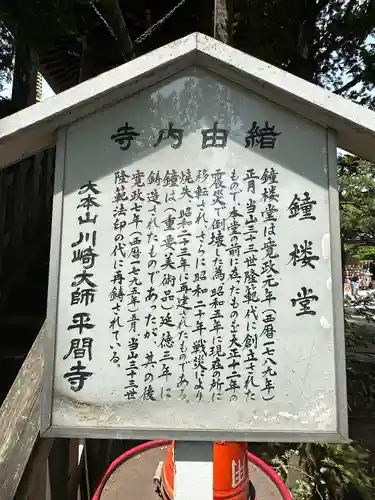 寺内由緒
鐘楼堂
鐘楼堂は寛政元年(西暦一七八九年)
正月、当山三十三世隆範代に創立された
もので、本堂の前に在ったものを大正十二年の
震災で倒壊した為、昭和五年に現在の
移転され、さらに昭和二十年、戦災により
焼失、昭和二十三年に再建されたものである。
鐘は(重要美術品)が徳三年に
鋳造されたものであったが、其の後
寛政七年(西暦一七九五年)五月、当山三十三世
隆範法印の代に再鋳されている。
大本山川崎大師平間寺